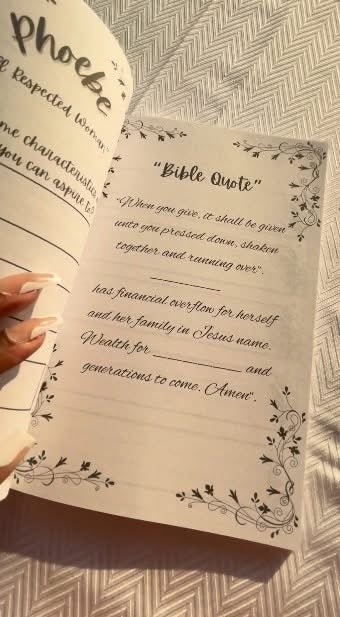 Phoebe
Respected Woman"
me characteristics
you can aspire to?
"Bible Quote"
"When you give, it shall be given
unto you pressed down, shaken
together and running over".
____________
has financial overflow for herself
and her family in Jesus name.
Wealth for ____________ and
generations to come. Amen".